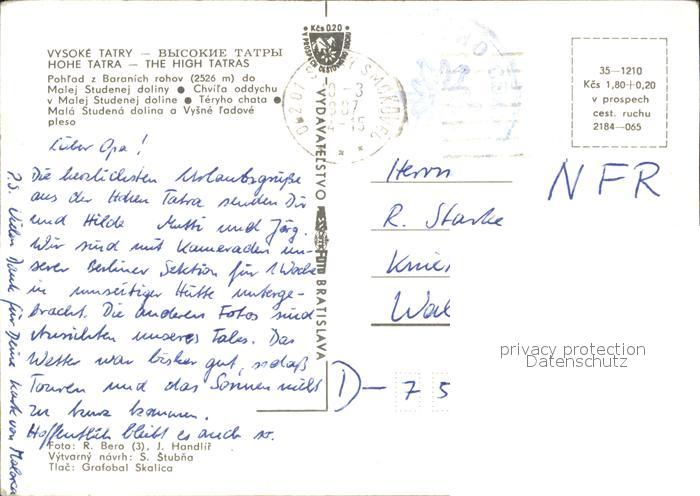 VYSOKÉ TATRY — ВЫСОКИЕ ТАТРЫ
HOHE TATRA — THE HIGH TATRAS
Pohľad z Baraních rohov (2526 m) do
Malej Studenej doliny ● Chvíľa oddychu
v Malej Studenej doline ● Téryho chata ●
Malá Studená dolina a Vyšné ľadové
pleso
Lieber Opa!
Die herzlichsten Urlaubsgrüße
aus der Hohen Tatra senden Dir
und Hilde Mutti und Jörg.
Wir sind mit Kameraden un-
serer Berliner Sektion für 1 Woche
in umseitiger Hütte unterge-
bracht. Die anderen Fotos sind
Ansichten unseres Tales. Das
Wetter war bisher gut, sodaß
Touren und das Sonnen nicht
zu kurz kommen.
Hoffentlich bleibt es auch so.
P.S. Vielen Dank für Deine Karte von
Foto: R. Bero (3), J. Handlíř
Výtvarný návrh: S. Štubňa
Tlač: Grafobal Skalica
VYDAVATEĽSTVO
BRATISLAVA
Kčs 0.20
SMOKOVEC
35—1210
Kčs 1,80+0,20
v prospech
cest. ruchu
2184—065
Herrn
R. Starke
NFR
D-75
privacy protection
Datenschutz